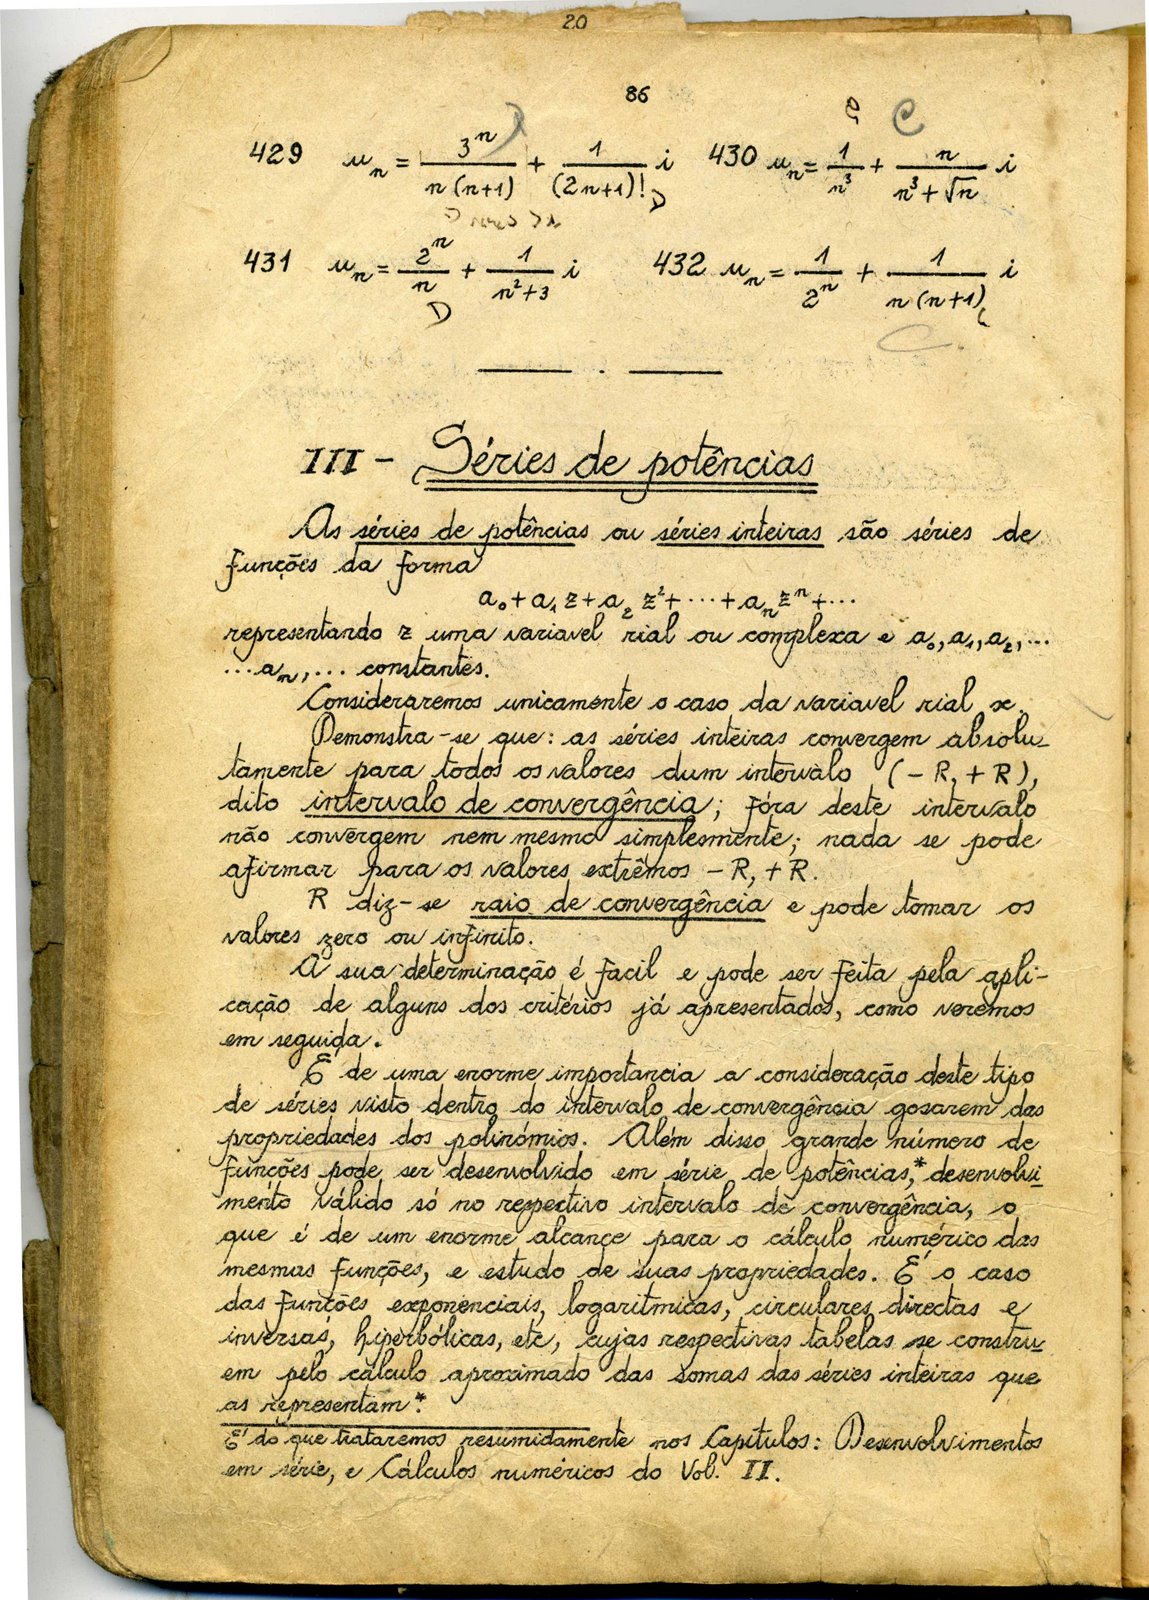 20
86
429 u_n = 3^n / n(n+1) + 1 / (2n+1)! i 430 u_n = 1 / n^3 + n / n^3 + √n i
D
431 u_n = 2^n / n + 1 / n^2+3 i 432 u_n = 1 / 2^n + 1 / n(n+1) i
D C
III - Séries de potências
As séries de potências ou séries inteiras são séries de
funções da forma
a_0 + a_1 z + a_2 z^2 + ··· + a_n z^n + ···
representando z uma variavel rial ou complexa e a_0, a_1, a_2, ...
... a_n, ... constantes.
Consideraremos unicamente o caso da variavel rial x.
Demonstra-se que: as séries inteiras convergem absolu-
tamente para todos os valores dum intervalo (- R, + R),
dito intervalo de convergência; fóra deste intervalo
não convergem nem mesmo simplesmente; nada se pode
afirmar para os valores extrêmos - R, + R.
R diz-se raio de convergência e pode tomar os
valores zero ou infinito.
A sua determinação é facil e pode ser feita pela apli-
cação de alguns dos critérios já apresentados, como veremos
em seguida.
É de uma enorme importancia a consideração deste tipo
de séries visto dentro do intervalo de convergência gosarem das
propriedades dos polinómios. Além disso grande número de
funções pode ser desenvolvido em série de potências,* desenvolvi-
mento válido só no respectivo intervalo de convergência, o
que é de um enorme alcance para o cálculo numérico das
mesmas funções, e estudo de suas propriedades. É o caso
das funções exponenciais, logaritmicas, circulares directas e
inversas, hiperbólicas, etc, cujas respectivas tabelas se constru-
em pelo cálculo aproximado das somas das séries inteiras que
as representam.*
É do que trataremos resumidamente nos Capítulos: Desenvolvimentos
em série, e Cálculos numéricos do Vol. II.